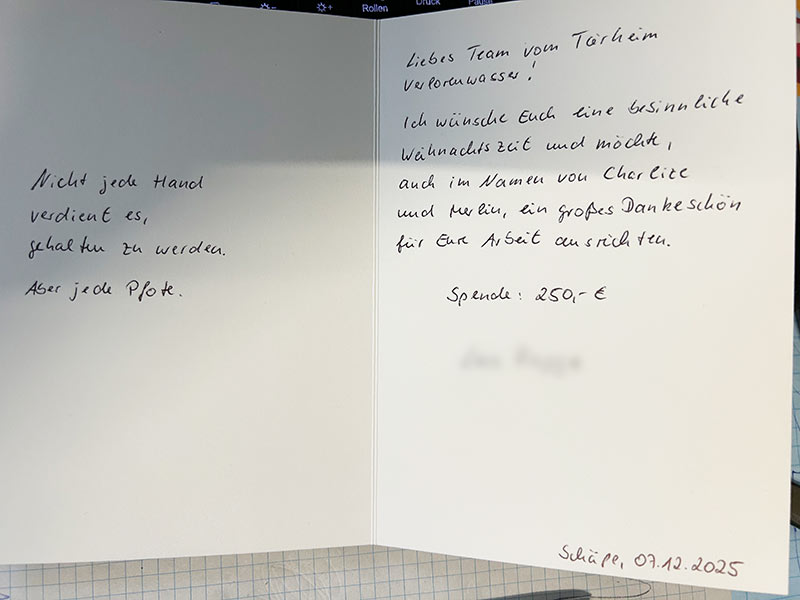 Rollen
Druck
Pause
Nicht jede Hand
verdient es,
gehalten zu werden.
Aber jede Pfote.
Liebes Team vom Tierheim
Verlorenwasser!
Ich wünsche Euch eine besinnliche
Weihnachtszeit und möchte,
auch im Namen von Charlize
und Merlin, ein großes Dankeschön
für Eure Arbeit ausrichten.
Spende: 250,- €
Schäpe, 07.12.2025